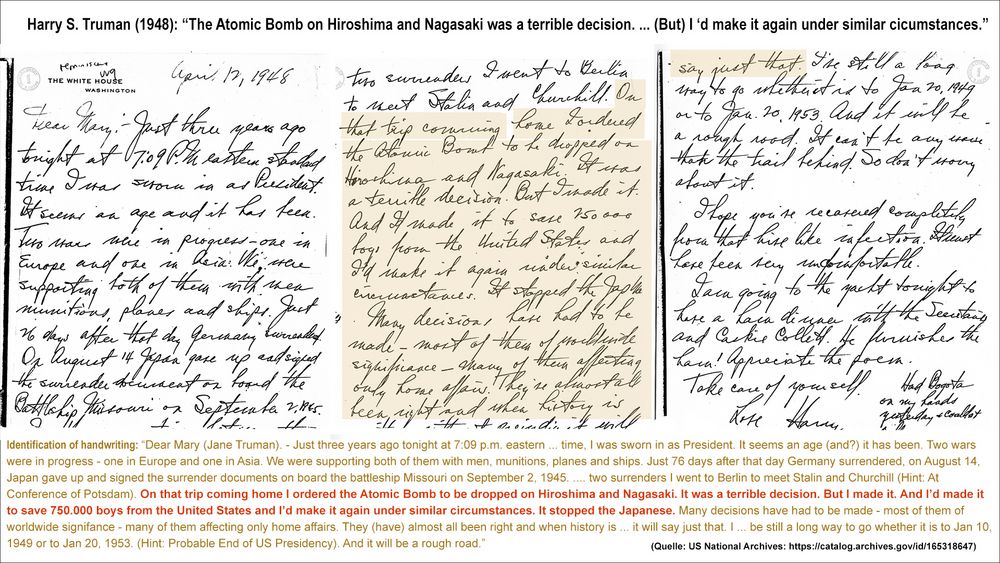 Harry S. Truman (1948): “The Atomic Bomb on Hiroshima and Nagasaki was a terrible decision. ... (But) I ‘d make it again under similar cicumstances.”
THE WHITE HOUSE
WASHINGTON
April 12, 1948
Dear Mary:- Just three years ago
tonight at 7:09 P.M. eastern standard
time I was sworn in as President.
It seems an age and it has been.
Two wars were in progress - one in
Europe and one in Asia. We were
supporting both of them with men
munitions, planes and ships. Just
26 days after that day Germany surrendered.
On August 14 Japan gave up and signed
the surrender document on board the
Battleship Missouri on September 2, 1945.
two surrenders I went to Berlin
to meet Stalin and Churchill. On
that trip coming home I ordered
the Atomic Bomb to be dropped on
Hiroshima and Nagasaki. It was
a terrible decision. But I made it.
And I made it to save 250000
boys from the United States and
I'd make it again under similar
circumstances. It stopped the Japs.
Many decisions have had to be
made - most of them of worldwide
significance - many of them affecting
only home affairs. They're almost all
been right and when history is
it will
say just that. I've still a long
way to go whether it is to Jan 20, 1949
or to Jan. 20, 1953. And it will be
a rough road. It can't be any worse
than the trail behind. So don't worry
about it.
I hope you've recovered completely
from that hive like infection. It must
have been very uncomfortable.
I am going to the yacht tonight to
have a ham dinner with the Secretary
and Caskie Collett. He furnishes the
ham! Appreciate the poem.
Take care of yourself.
Love Harry
Had Bogota
on my hands
yesterday & couldn't
Identification of handwriting: “Dear Mary (Jane Truman). - Just three years ago tonight at 7:09 p.m. eastern ... time, I was sworn in as President. It seems an age (and?) it has been. Two wars
were in progress - one in Europe and one in Asia. We were supporting both of them with men, munitions, planes and ships. Just 76 days after that day Germany surrendered, on August 14,
Japan gave up and signed the surrender documents on board the battleship Missouri on September 2, 1945. .... two surrenders I went to Berlin to meet Stalin and Churchill (Hint: At
Conference of Potsdam). On that trip coming home I ordered the Atomic Bomb to be dropped on Hiroshima and Nagasaki. It was a terrible decision. But I made it. And I’d made it
to save 750.000 boys from the United States and I’d make it again under similar circumstances. It stopped the Japanese. Many decisions have had to be made - most of them of
worldwide signifance - many of them affecting only home affairs. They (have) almost all been right and when history is ... it will say just that. I ... be still a long way to go whether it is to Jan 10,
1949 or to Jan 20, 1953. (Hint: Probable End of US Presidency). And it will be a rough road.”
(Quelle: US National Archives: https://catalog.archives.gov/id/165318647)